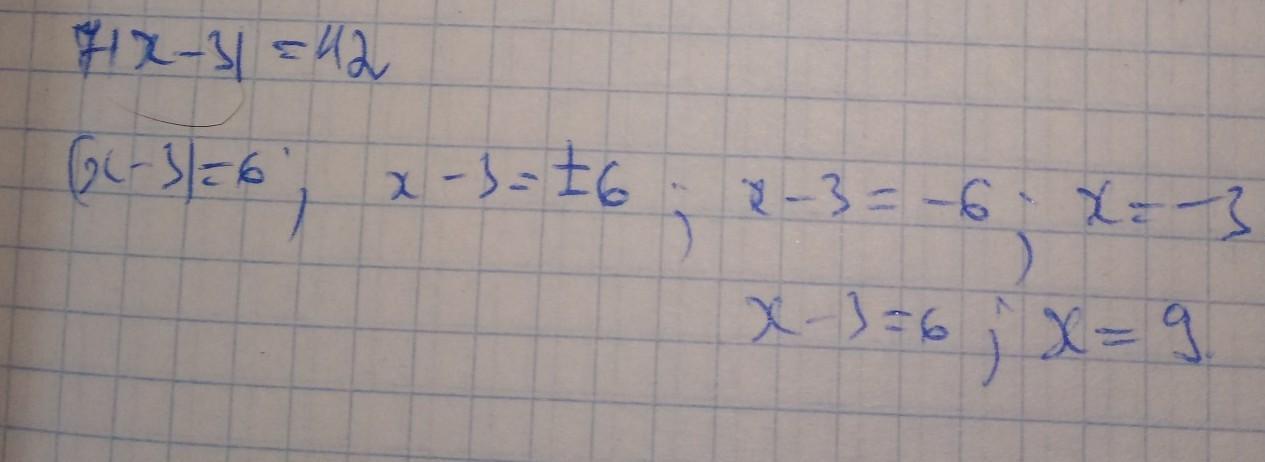 7|x-3| = 42
|x-3|=6; x-3=±6; x-3=-6; x=-3
x-3=6; x=9.